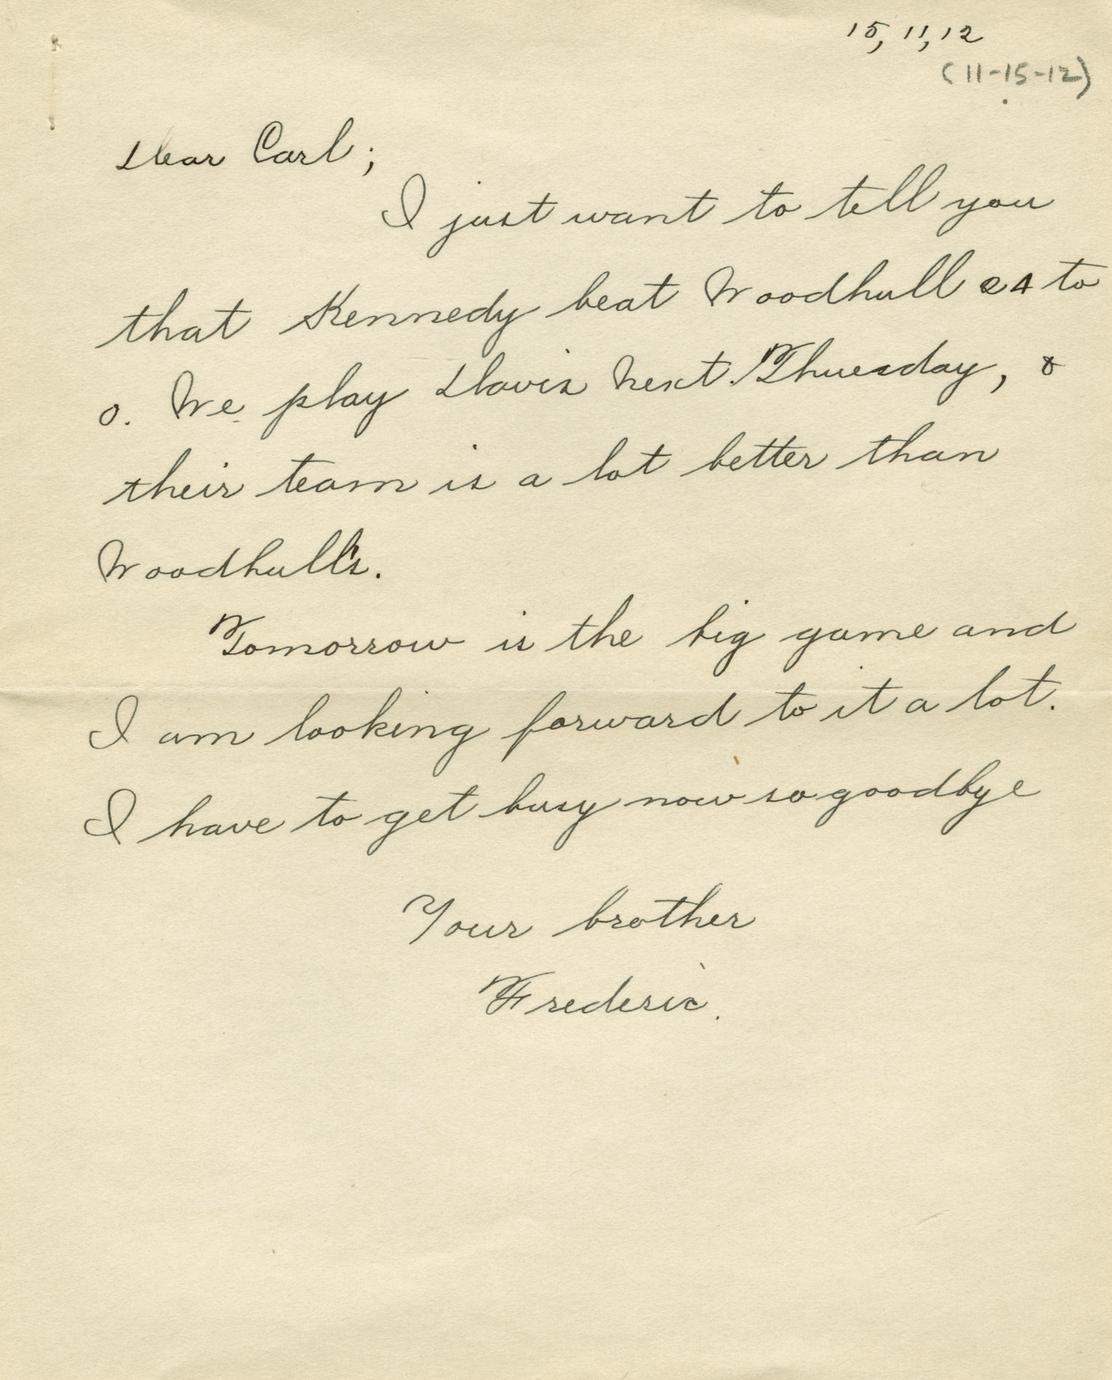 15, 11, 12
(11-15-12)
Dear Carl;
I just want to tell you
that Kennedy beat Woodhull 24 to
0. We play Davis next Thuesday, &
their team is a lot better than
Woodhull's.
Tomorrow is the big game and
I am looking forward to it a lot.
I have to get busy now so goodbye
Your brother
Frederic.